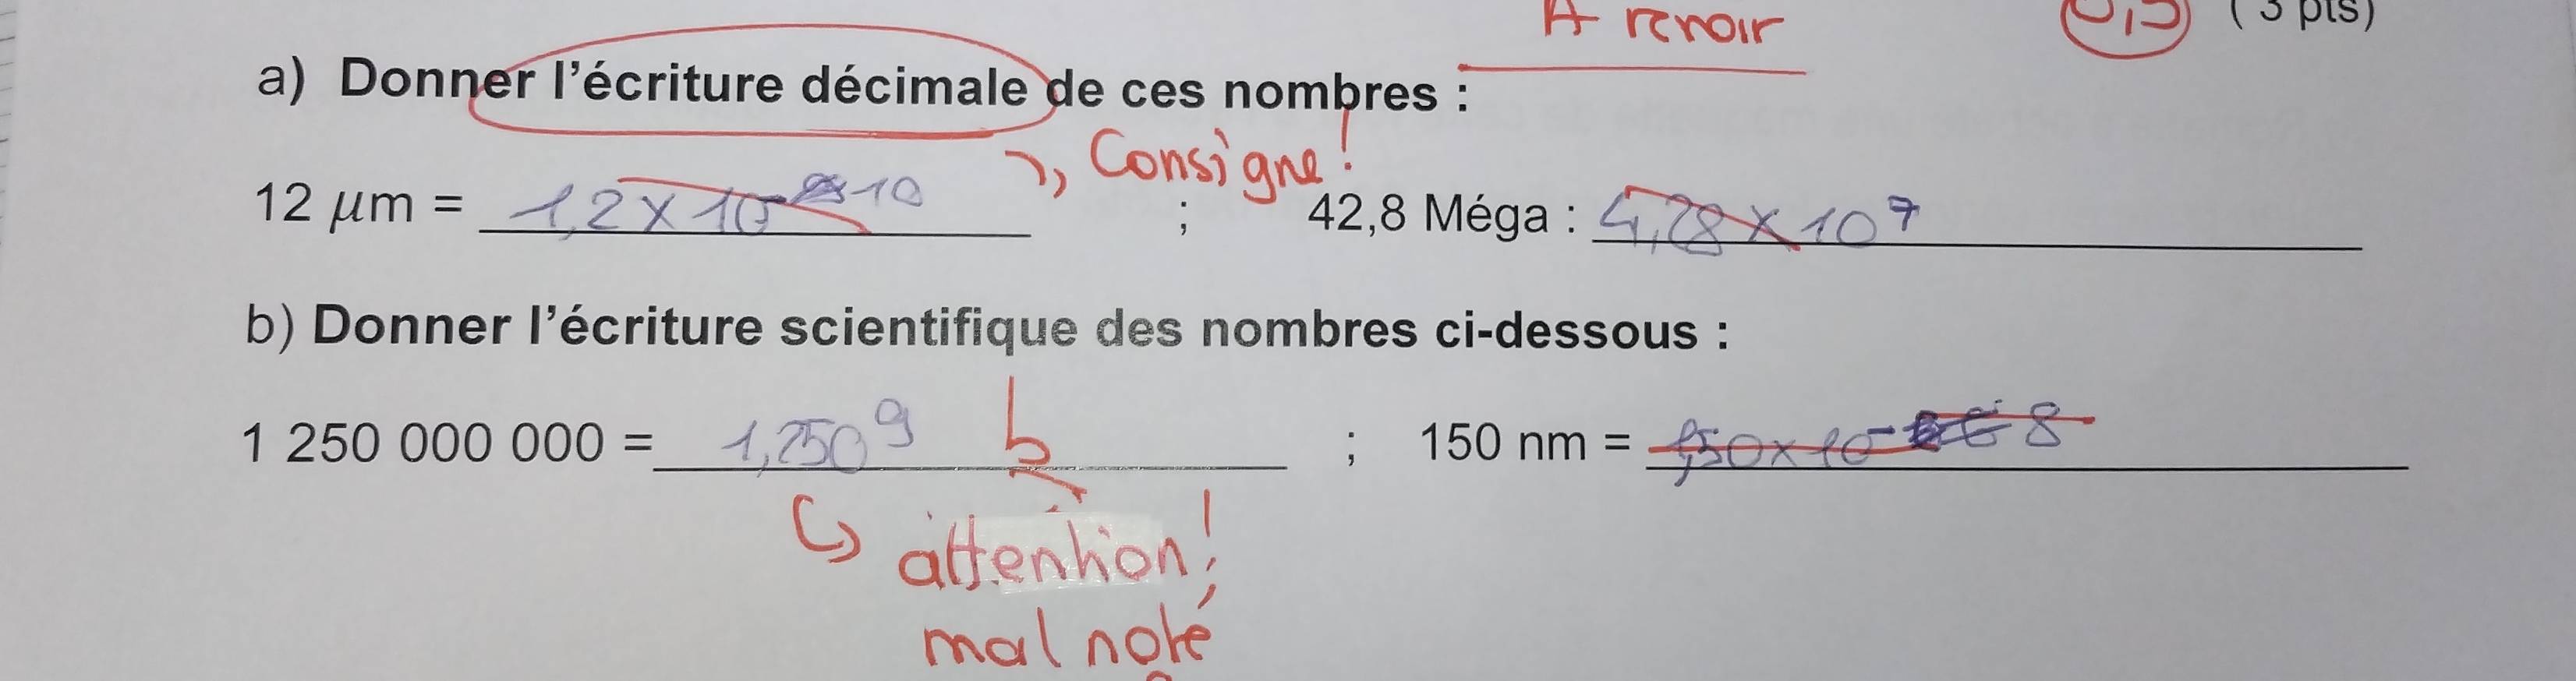 A revoir 0,5 ( 3 pts)
a) Donner l'écriture décimale de ces nombres :
↳ Consigne !
12 µm = 1,2 x 10⁻¹⁰ ; 42,8 Méga : 4,28 x 10⁷
b) Donner l'écriture scientifique des nombres ci-dessous :
1 250 000 000 = 1,250⁹ ; 150 nm = 1,50 x 10⁻⁸
↳ attention !
mal noté